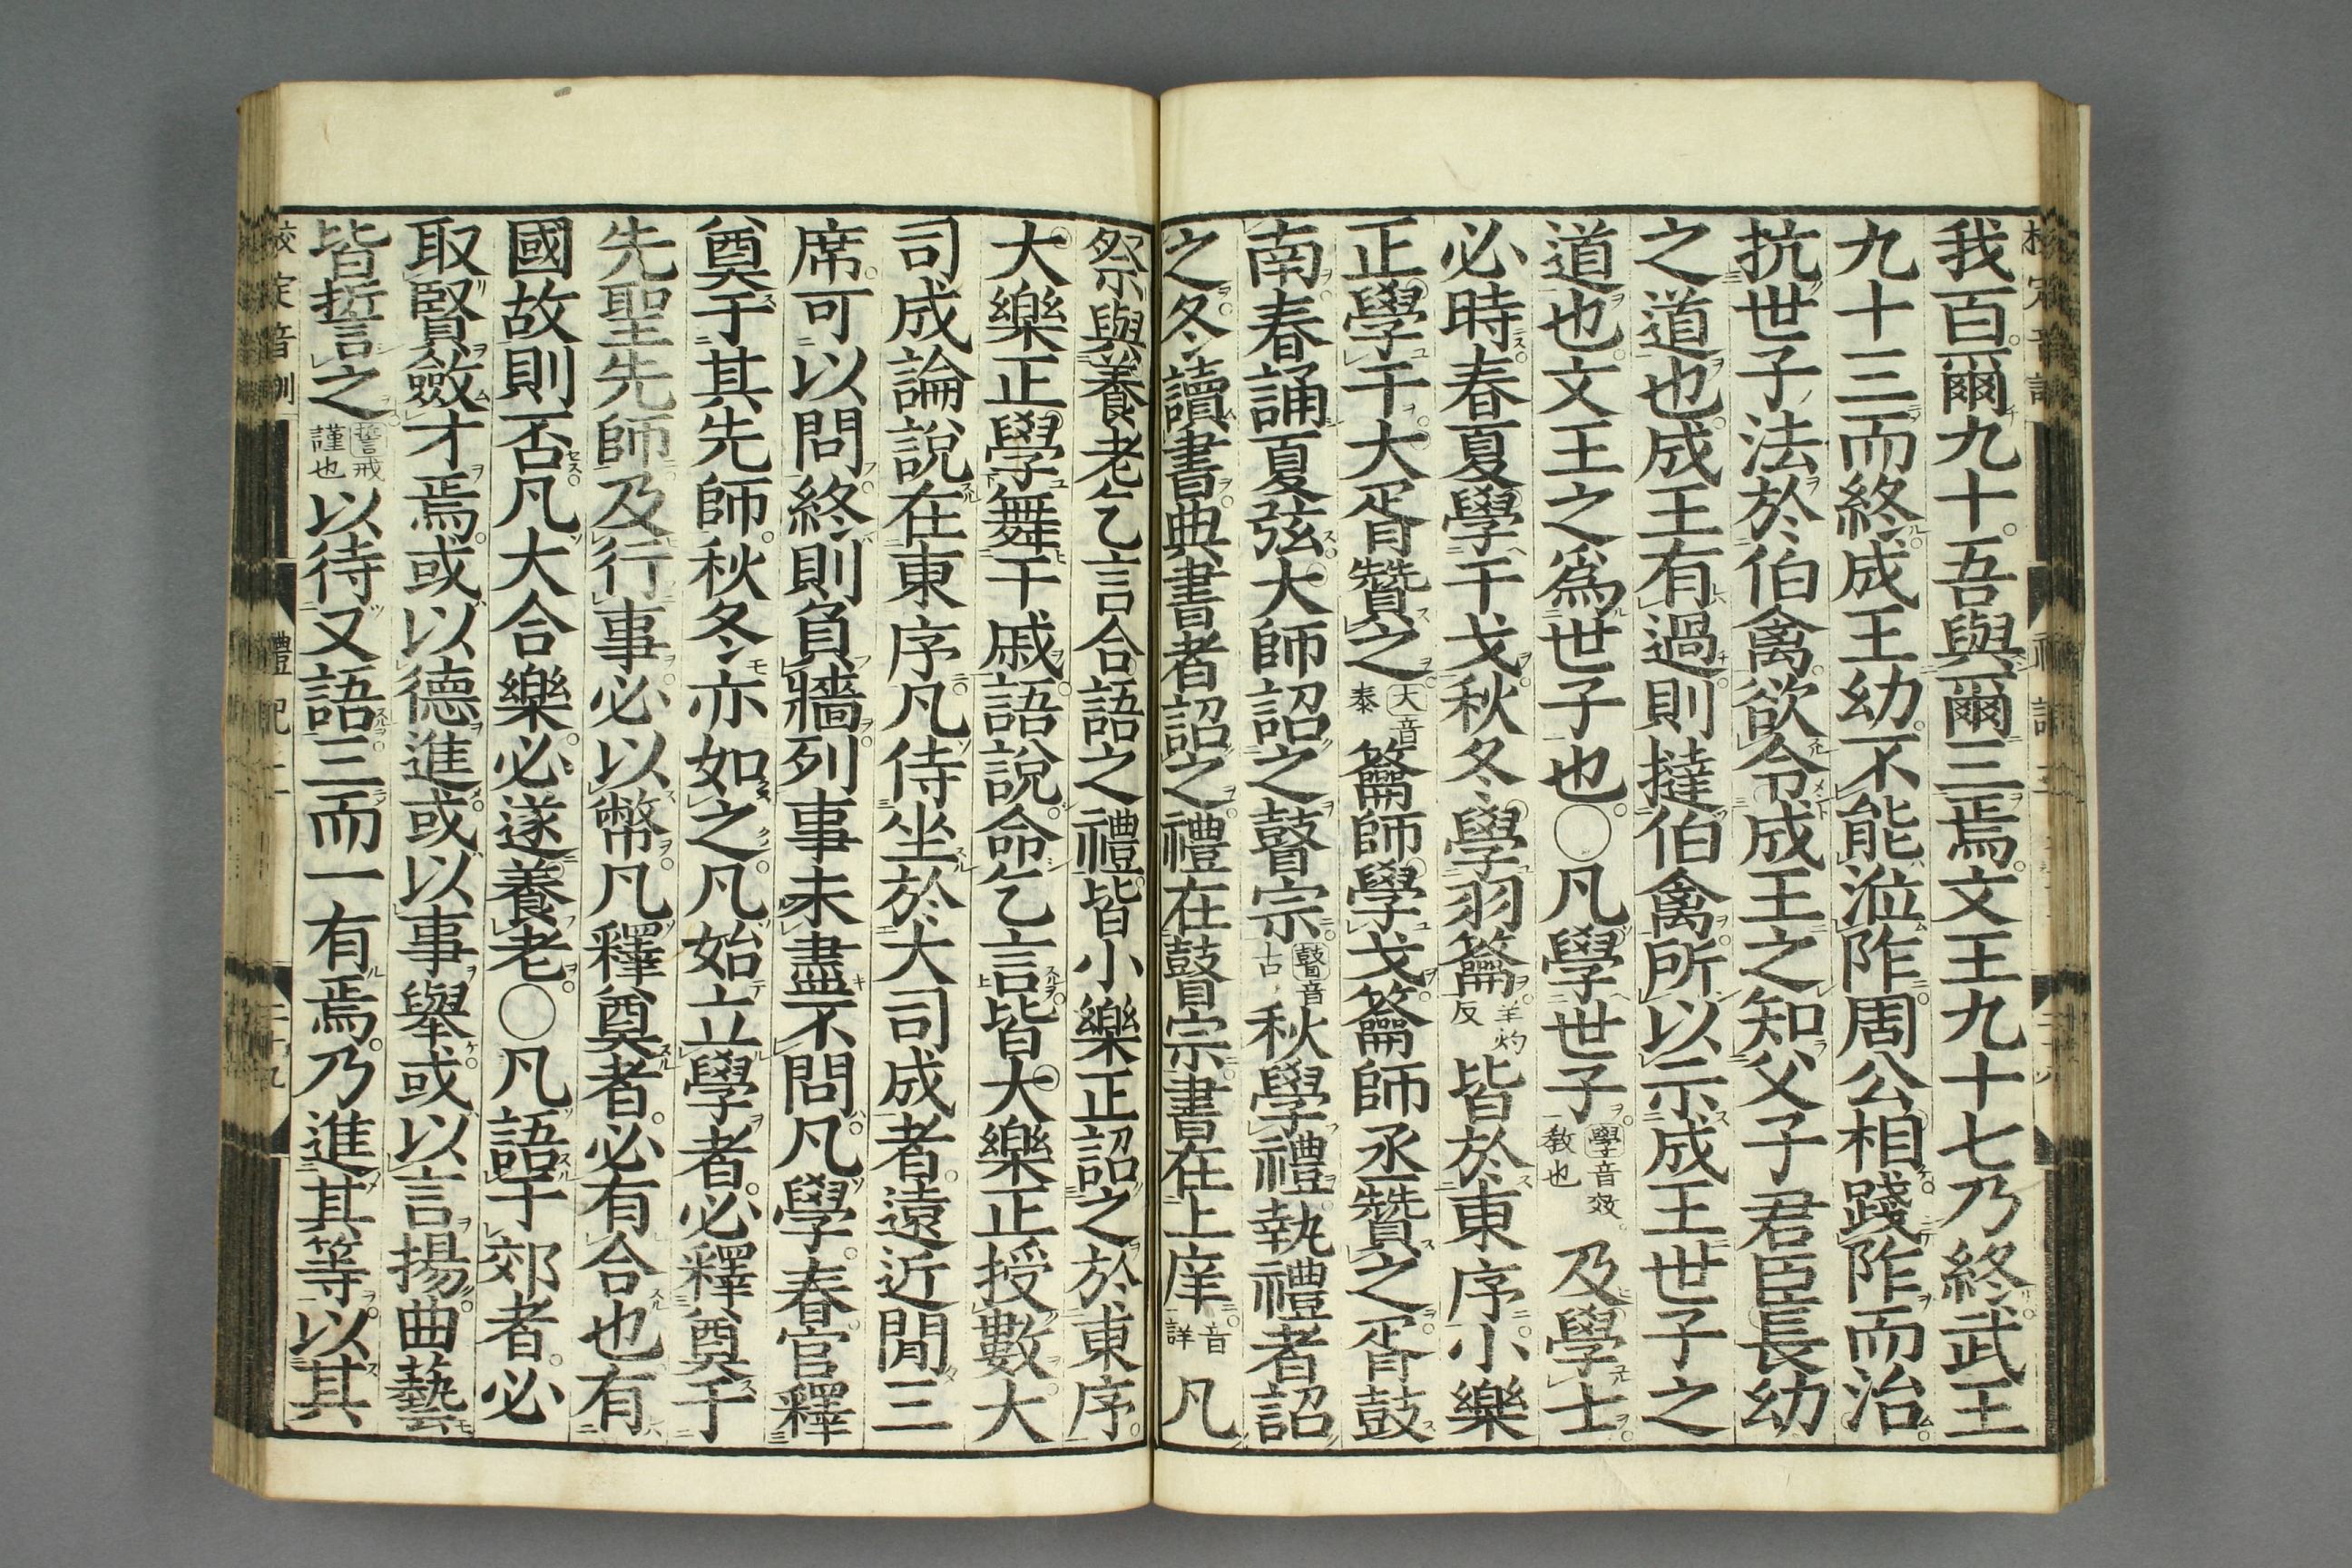 我百爾九十吾與爾三焉文王九十七乃終武王
九十三而終成王幼不能涖阼周公相踐阼而治
抗世子法於伯禽欲令成王之知父子君臣長幼
之道也成王有過則撻伯禽所以示成王世子之
道也文王之爲世子也〇凡學世子學音效教也及學士
必時春夏學干戈秋冬學羽籥羊灼反皆於東序小樂
正學干大胥贊之大音泰籥師學戈籥師丞贊之胥鼓
南春誦夏弦大師詔之瞽宗瞽音古秋學禮執禮者詔
之冬讀書典書者詔之禮在瞽宗書在上庠音詳凡
祭與養老乞言合語之禮皆小樂正詔之於東序
大樂正學舞干戚語說命乞言皆大樂正授數大
司成論說在東序凡侍坐於大司成者遠近閒三
席可以問終則負牆列事未盡不問凡學春官釋
奠于其先師秋冬亦如之凡始立學者必釋奠于
先聖先師及行事必以幣凡釋奠者必有合也有
國故則否凡大合樂必遂養老〇凡語于郊者必
取賢斂才焉或以德進或以事舉或以言揚曲藝
皆誓之誓戒謹也以待又語三而一有焉乃進其等以其
校定音訓 禮記二 二十九